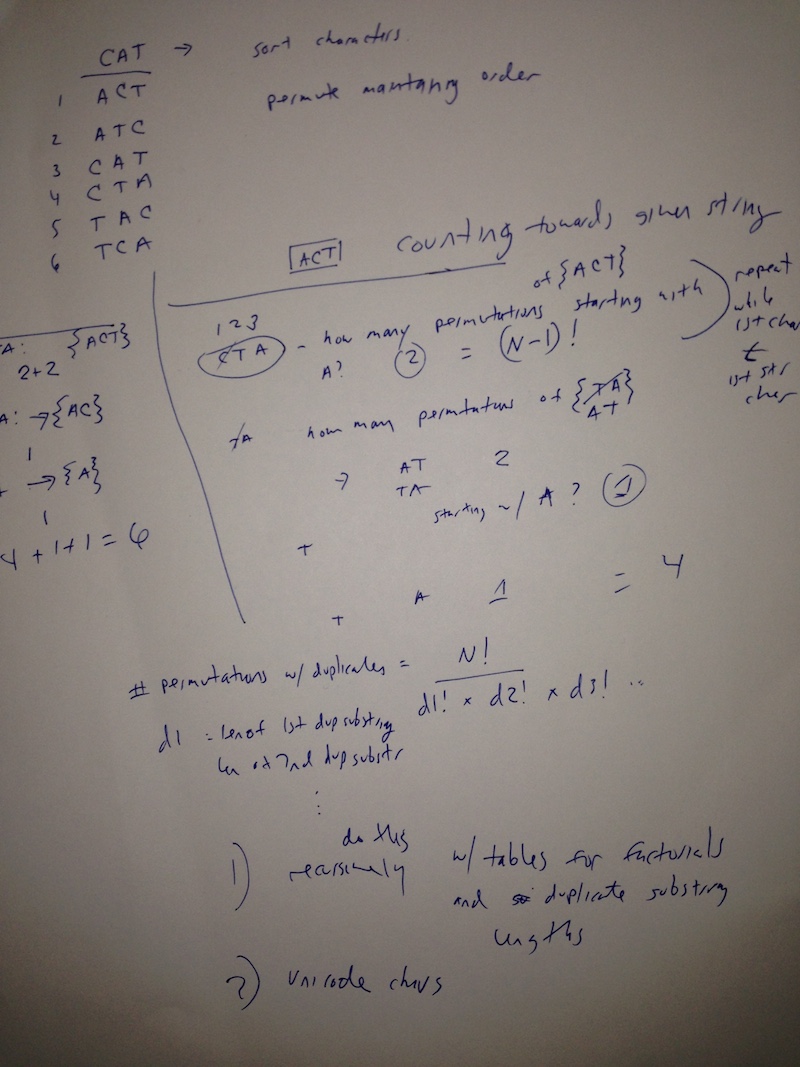 CAT → sort characters
1 ACT permute maintaining order
2 ATC
3 CAT
4 CTA
5 TAC
6 TCA
ACT counting towards given string
123
CTA - how many permutations of {ACT} starting with
A? 2 = (N-1)!
repeat
while
1st char
≠
1st str
char
TA how many permutations of {TA}
AT
→ AT 2
TA
starting w/ A? 1
+
+ A 1 = 4
TA: {ACT}
2+2
A: → {AC}
1
→ {A}
1
4 + 1 + 1 = 6
# permutations w/ duplicates = N!
d1! × d2! × d3! ..
d1 = len of 1st dup substring
len of 2nd dup substr
⋮
1) do this
recursively w/ tables for factorials
and duplicate substring
lengths
2) unicode chars